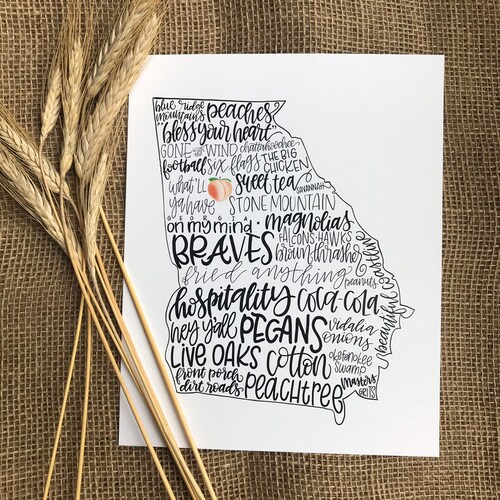 blue ridge mountains peaches
"bless your heart"
GONE with the WIND chattahoochee
football six flags THE BIG CHICKEN
what'll ya have sweet tea SAVANNAH
STONE MOUNTAIN
GEORGIA
on my mind • magnolias
BRAVES FALCONS • HAWKS
brown thrasher
fried anything peanuts
beautiful coastline
hospitality coca-cola
hey y'all PECANS vidalia onions
LIVE OAKS cotton okefenokee swamp
front porch masters
dirt roads peachtree GRITS